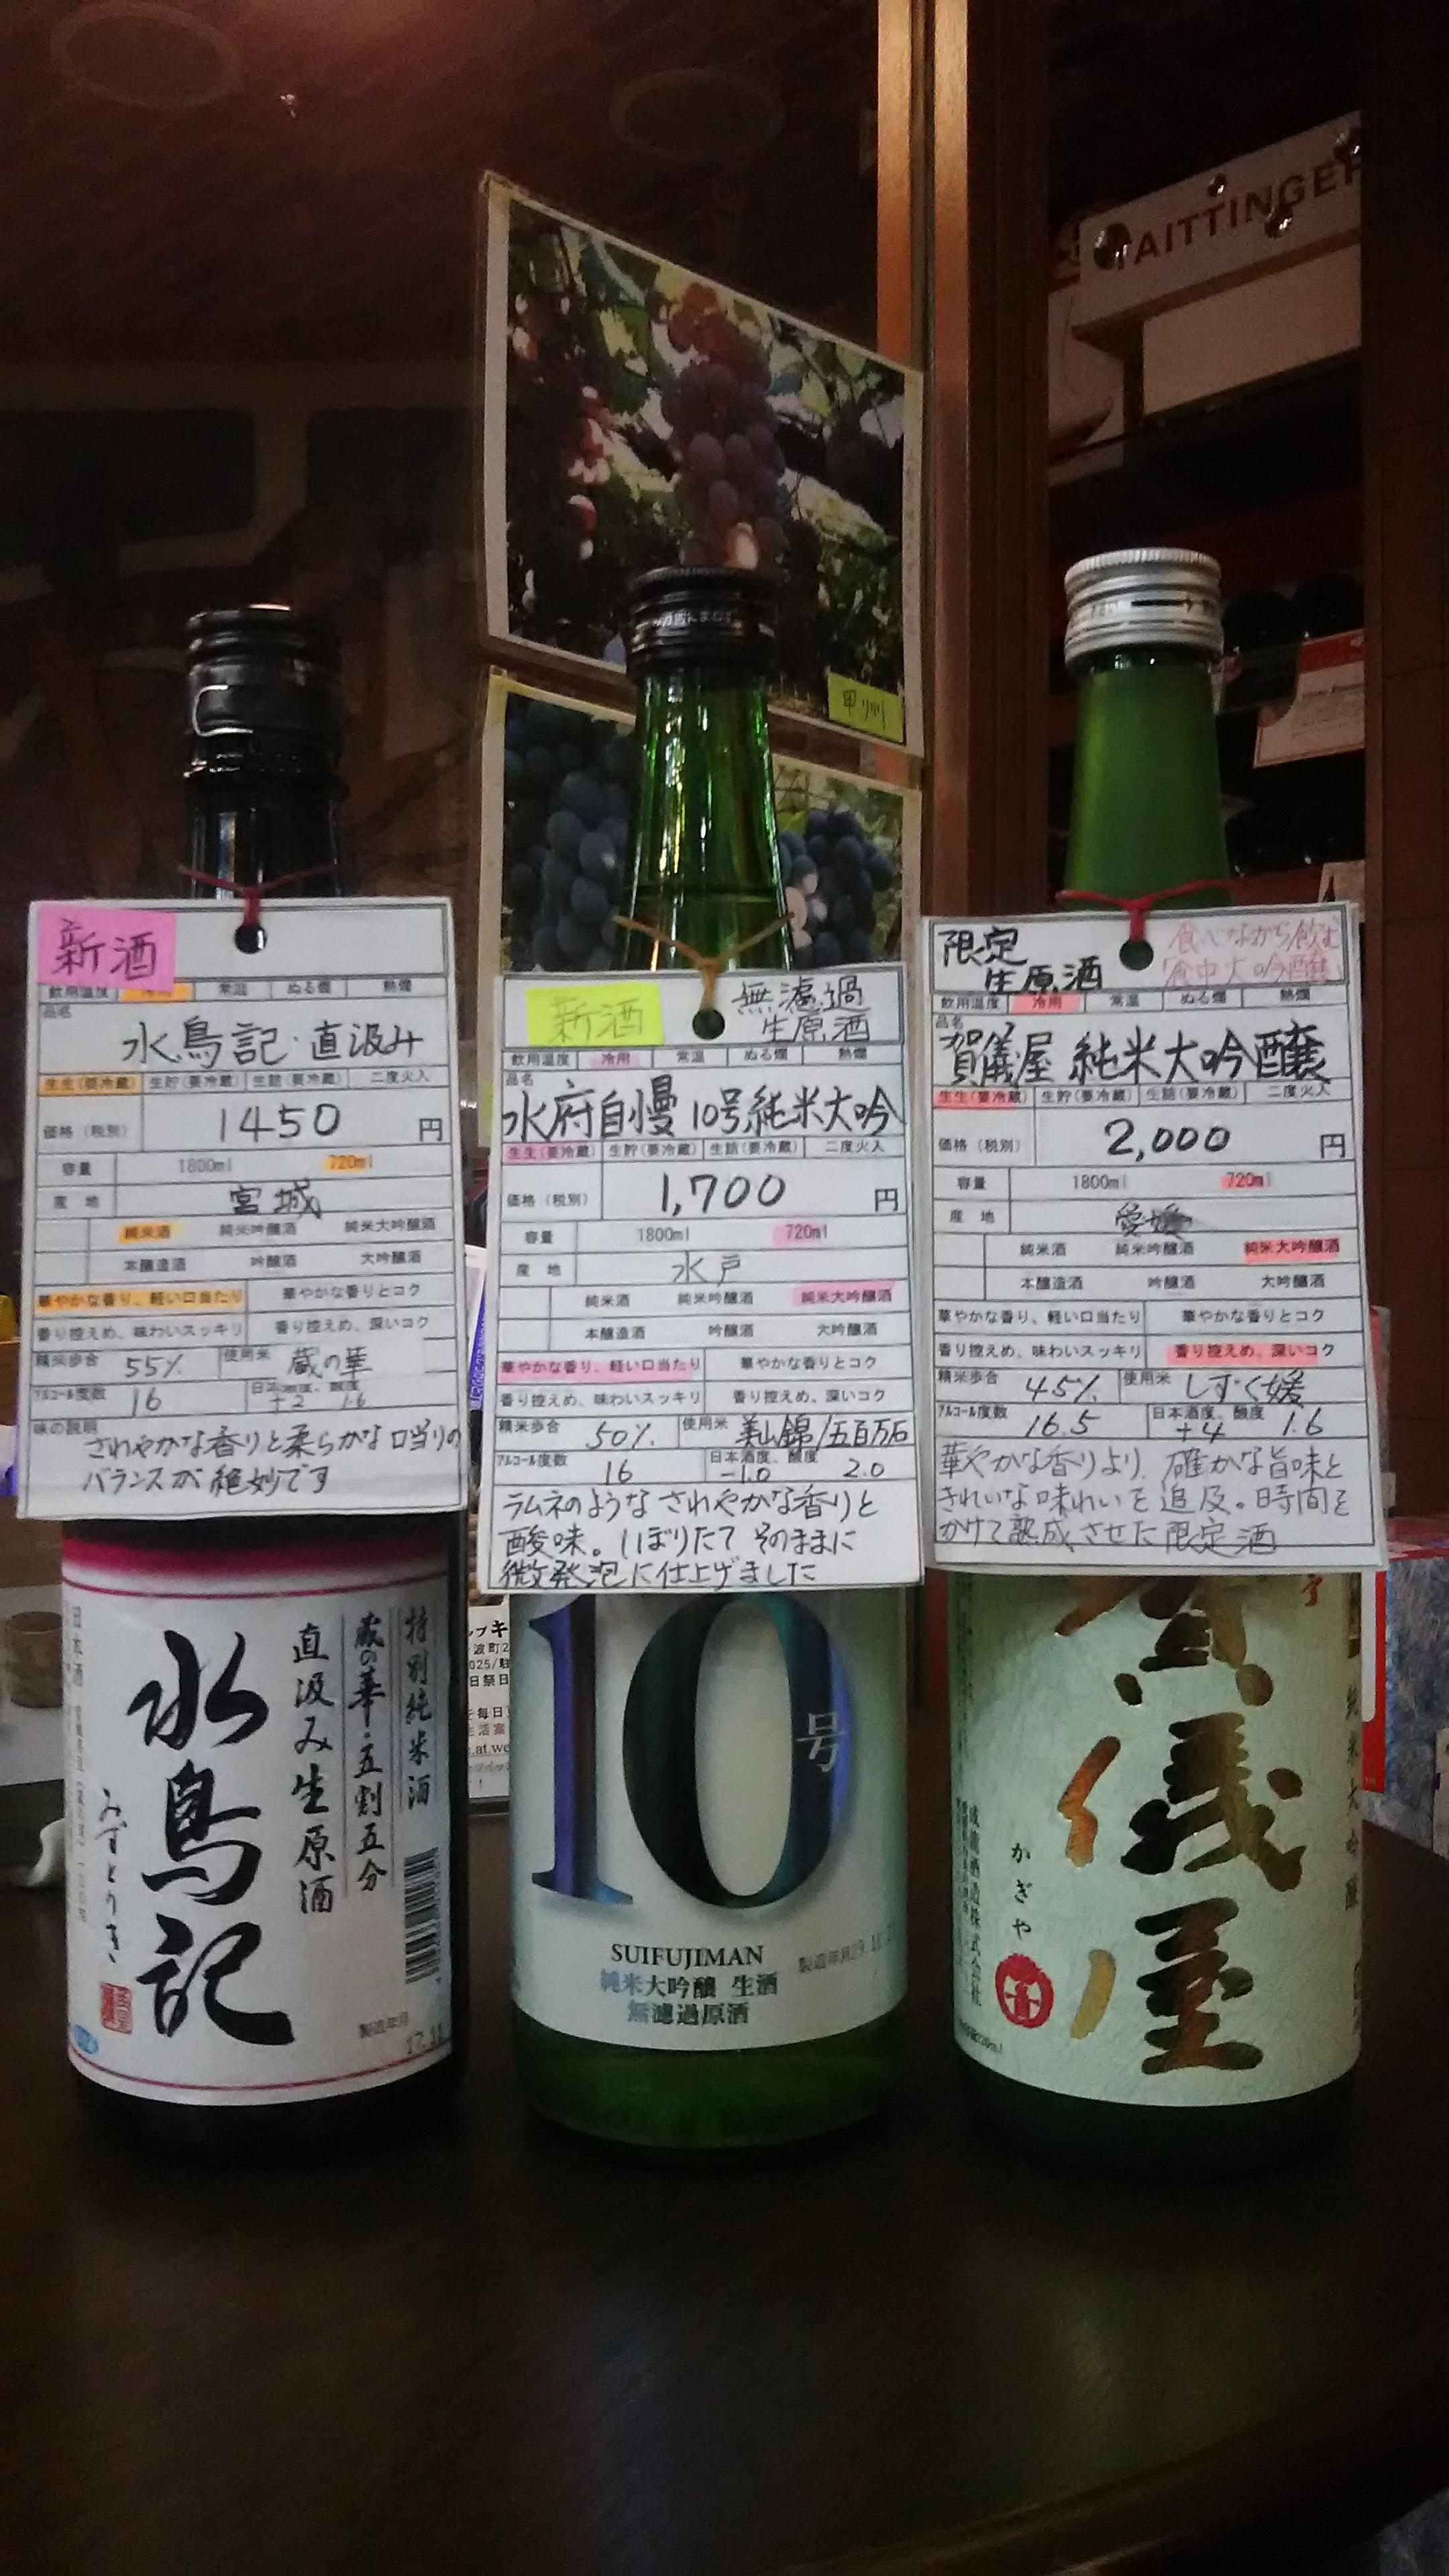 TAITTINGER
甲州
新酒
飲用温度 冷用 常温 ぬる燗 熱燗
品名
水鳥記・直汲み
生生(要冷蔵) 生貯(要冷蔵) 生詰(要冷蔵) 二度火入
価格(税別) 1450 円
容量 1800ml 720ml
産地 宮城
純米酒 純米吟醸酒 純米大吟醸酒
本醸造酒 吟醸酒 大吟醸酒
華やかな香り、軽い口当たり 華やかな香りとコク
香り控えめ、味わいスッキリ 香り控えめ、深いコク
精米歩合 55% 使用米 蔵の華
アルコール度数 16 日本酒度、酸度 +2 1.6
味の説明
さわやかな香りと柔らかな口当りの
バランスが絶妙です
特別純米酒
蔵の華・五割五分
直汲み生原酒
水鳥記
みずとりき
日本酒
製造年月
新酒 無濾過
生原酒
飲用温度 冷用 常温 ぬる燗 熱燗
品名
水府自慢 10号純米大吟
生生(要冷蔵) 生貯(要冷蔵) 生詰(要冷蔵) 二度火入
価格(税別) 1,700 円
容量 1800ml 720ml
産地 水戸
純米酒 純米吟醸酒 純米大吟醸酒
本醸造酒 吟醸酒 大吟醸酒
華やかな香り、軽い口当たり 華やかな香りとコク
香り控えめ、味わいスッキリ 香り控えめ、深いコク
精米歩合 50% 使用米 美山錦/五百万石
アルコール度数 16 日本酒度、酸度 -1.0 2.0
ラムネのような さわやかな香りと
酸味。しぼりたて そのままに
微発泡に仕上げました
10
号
SUIFUJIMAN
純米大吟醸 生酒
無濾過原酒
製造年月
限定
生原酒
食べながら飲む
食中大吟醸
飲用温度 冷用 常温 ぬる燗 熱燗
品名
賀儀屋 純米大吟醸
生生(要冷蔵) 生貯(要冷蔵) 生詰(要冷蔵) 二度火入
価格(税別) 2,000 円
容量 1800ml 720ml
産地 愛媛
純米酒 純米吟醸酒 純米大吟醸酒
本醸造酒 吟醸酒 大吟醸酒
華やかな香り、軽い口当たり 華やかな香りとコク
香り控えめ、味わいスッキリ 香り控えめ、深いコク
精米歩合 45% 使用米 しずく媛
アルコール度数 16.5 日本酒度、酸度 +4 1.6
華やかな香りより、確かな旨味と
きれいな味わいを追及。時間を
かけて熟成させた限定酒
純米大吟醸
賀儀屋
かぎや
成龍酒造株式会社